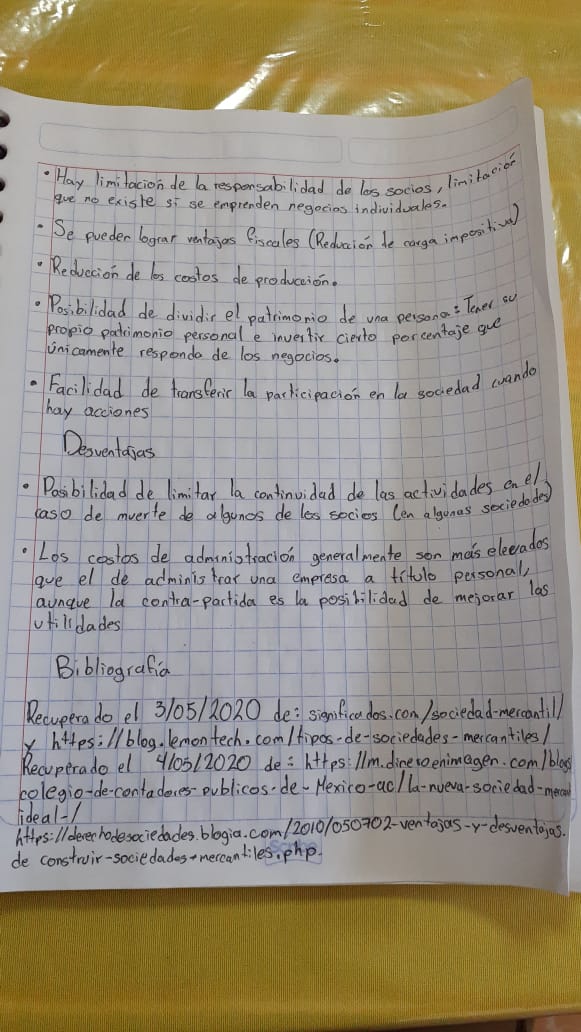 • Hay limitación de la responsabilidad de los socios, limitación
que no existe si se emprenden negocios individuales.
• Se pueden lograr ventajas fiscales (Reducción de carga impositiva)
• Reducción de los costos de producción.
• Posibilidad de dividir el patrimonio de una persona: Tener su
propio patrimonio personal e invertir cierto porcentaje que
únicamente responda de los negocios.
• Facilidad de transferir la participación en la sociedad cuando
hay acciones
Desventajas
• Posibilidad de limitar la continuidad de las actividades en el
caso de muerte de algunos de los socios (en algunas sociedades)
• Los costos de administración generalmente son más elevados
que el de administrar una empresa a título personal,
aunque la contra-partida es la posibilidad de mejorar las
utilidades
Bibliografía
Recuperado el 3/05/2020 de: significados.com/sociedad-mercantil/
y https://blog.lemontech.com/tipos-de-sociedades-mercantiles/
Recuperado el 4/05/2020 de: https://m.dineroenimagen.com/blogs
colegio-de-contadores-publicos-de-Mexico-ac/la-nueva-sociedad-mercan
ideal-/
https://derechodesociedades.blogia.com/2010/050702-ventajas-y-desventajas.
de construir-sociedades-mercantiles.php.